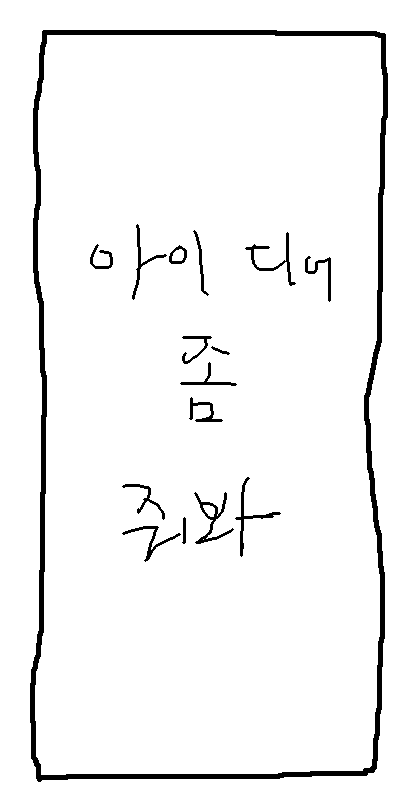 아이디어
좀
줘봐